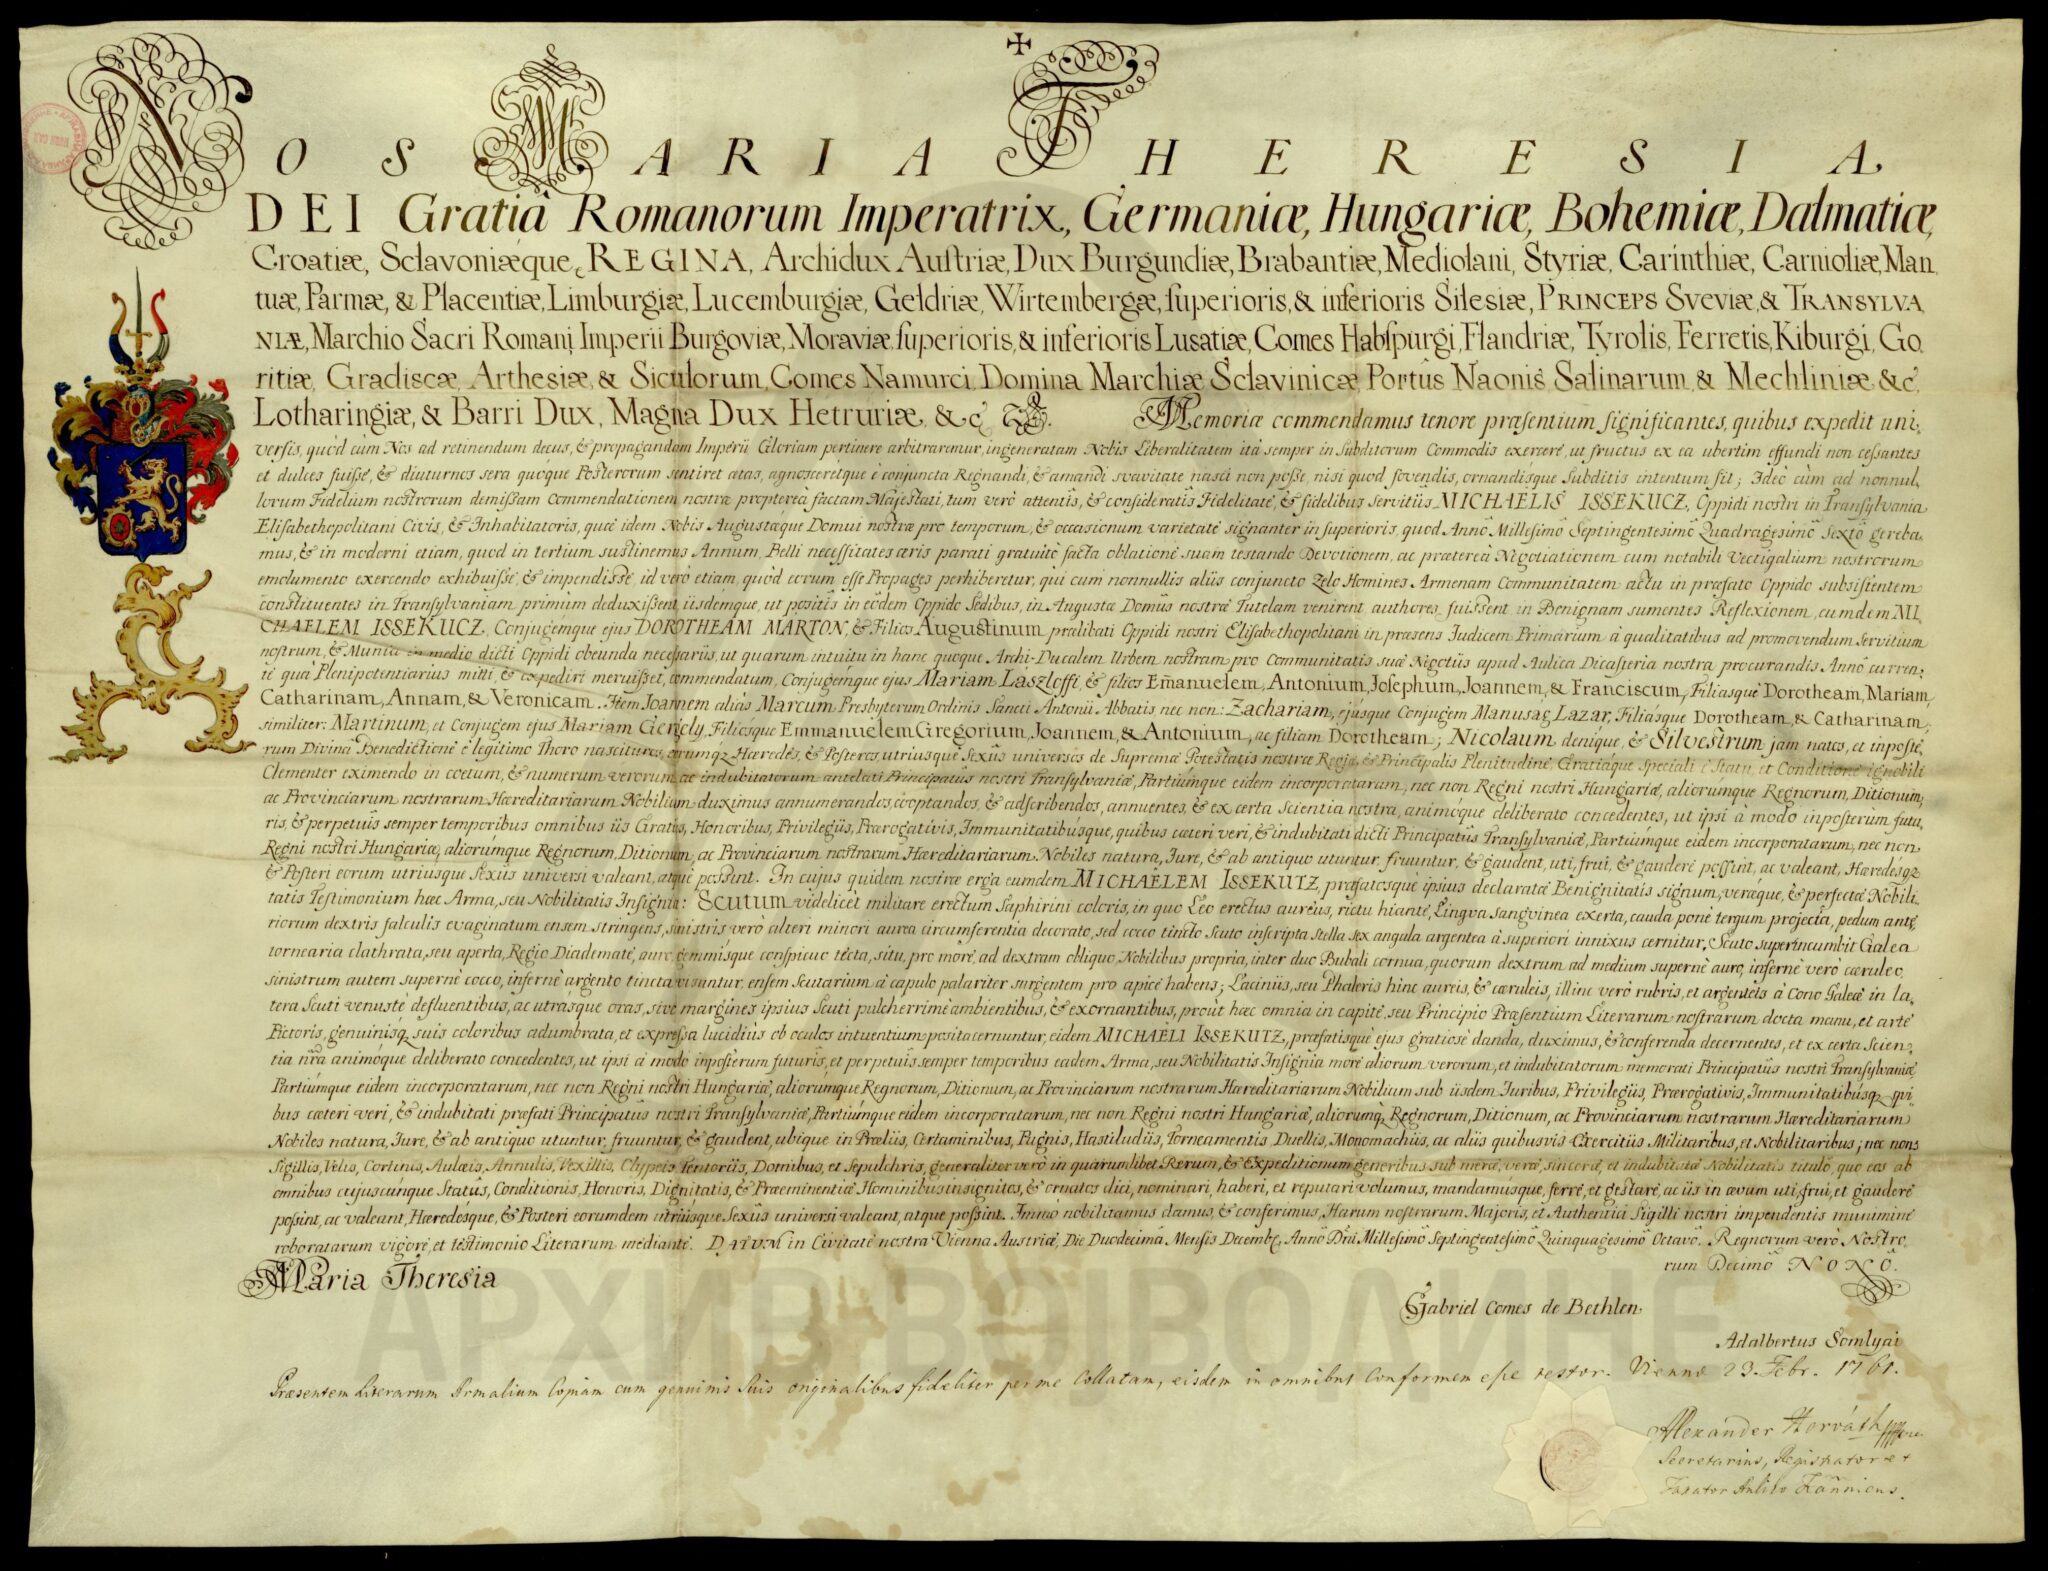 NOS MARIA THERESIA
DEI Gratiâ Romanorum Imperatrix, Germaniæ, Hungariæ, Bohemiæ, Dalmatiæ,
Croatiæ, Sclavoniæque, REGINA, Archidux Austriæ, Dux Burgundiæ, Brabantiæ, Mediolani, Styriæ, Carinthiæ, Carnioliæ, Man,
tuæ, Parmæ, & Placentiæ, Limburgiæ, Lucemburgiæ, Geldriæ, Wirtembergæ, superioris, & inferioris Silesiæ, PRINCEPS Sveviæ, & TRANSYLVA
NIÆ, Marchio Sacri Romani Imperii Burgoviæ, Moraviæ, superioris, & inferioris Lusatiæ, Comes Habspurgi, Flandriæ, Tyrolis, Ferretis, Kiburgi, Go,
ritiæ, Gradiscæ, Arthesiæ, & Siculorum, Comes Namurci, Domina Marchiæ Sclavinicæ, Portûs Naonis, Salinarum, & Mechliniæ &c,
Lotharingiæ, & Barri Dux, Magna Dux Hetruriæ, &c. Memoriæ commendamus tenore præsentium significantes, quibus expedit uni,
versis, quòd cùm Nos ad retinendum decus, & propagandam Imperii Gloriam pertinere arbitraremur, ingeneratam Nobis Liberalitatem ità semper in Subditorum Commodis exercere, ut fructus ex ea ubertim effundi non cessantes
et dulces fuisse, & diuturnos sera quoque Posterorum sentiret ætas, agnosceretque è conjuncta Regnandi, & amandi suavitate nasci non posse, nisi quod fovendis, ornandisque Subditis intentum sit; Ideò cùm ad nonnul,
lorum Fidelium nostrorum demissam Commendationem nostræ proptereà factam Majestati, tum verò attentis, & consideratis Fidelitate, & fidelibus servitiis MICHAËLIS ISSEKUCZ, Oppidi nostri in Transylvania
Elisabethopolitani Civis, & Inhabitatoris, quæ idem Nobis Augustæque Domui nostræ pro temporum, & occasionum varietate signanter in superioris, quod Annô Millesimô Septingentesimô Quadragesimô Sextô gereba,
mus, & in moderni etiam, quod in tertium sustinemus Annum, Belli necessitates æris parati gratuitò factâ oblatione suam testando Devotionem, ac præterea Negotiationem cum notabili Vectigalium nostrorum
emolumento exercendo exhibuisse, & impendisse, id verò etiam, quòd eorum esse Propages perhiberetur, qui cum nonnullis aliis conjuncto Zelo Homines Armenam Communitatem actu in præfato Oppido subsistentem
constituentes in Transylvaniam primùm deduxissent, iisdemque, ut positis in eôdem Oppido Sedibus, in Augustæ Domûs nostræ Tutelam venirent, authores fuissent, in Benignam sumentes Reflexionem, eumdem MI
CHAËLEM ISSEKUCZ, Conjugemque ejus DOROTHEAM MARTON, & Filios Augustinum prælibati Oppidi nostri Elisabethopolitani in præsens Judicem Primarium à qualitatibus ad promovendum servitium
nostrum, & Munia in medio dicti Oppidi obeunda necessariis, ut quarum intuitu in hanc quoque Archi-Ducalem Urbem nostram pro Communitatis suæ Negotiis apud Aulica Dicasteria nostra procurandis Annô curren,
te quà Plenipotentiarius mitti, & expediri meruisset, commendatum, Conjugemque ejus Mariam Laszloffi, & filios Emanuelem, Antonium, Josephum, Joannem, & Franciscum, Filiasque Dorotheam, Mariam,
Catharinam, Annam, & Veronicam. Item Joannem aliàs Marcum Presbyterum Ordinis Sancti Antonii Abbatis, nec non: Zachariam, ejusque Conjugem Manusag Lazar, Filiasque Dorotheam, & Catharinam,
similiter: Martinum, et Conjugem ejus Mariam Gergely, Filiosque Emmanuëlem, Gregorium, Joannem, & Antonium, ac filiam Dorotheam; Nicolaum denique, & Silvestrum jam natos, et inposte,
rum Divinâ Benedictionê è legitimo Thoro nascituros, eorumqz Hæredes, & Posteros, utriusque Sexûs universos de Supremæ Potestatis nostræ Regiæ, & Principalis Plenitudine, Gratiâque speciali è Statu, et Conditione ignobili
Clementer eximendo in coetum, & numerum verorum, ac indubitatorum antelati Principatûs nostri Transylvaniæ, Partiumque eidem incorporatarum, nec non Regni nostri Hungariæ, aliorumque Regnorum, Ditionum,
ac Provinciarum nostrarum Hæreditariarum Nobilium duximus annumerandos, cooptandos, & adscribendos, annuentes, & ex certa scientia nostra, animoque deliberato concedentes, ut ipsi à modo inposterum futu,
ris, & perpetuis semper temporibus omnibus iis Gratiis, Honoribus, Privilegiis, Prærogativis, Immunitatibusque, quibus cæteri veri, & indubitati dicti Principatûs Transylvaniæ, Partiumque eidem incorporatarum, nec non
Regni nostri Hungariæ, aliorumque Regnorum, Ditionum, ac Provinciarum nostrarum Hæreditariarum Nobiles natura, Jure, & ab antiquo utuntur, fruuntur, & gaudent, uti, frui, & gaudere possint, ac valeant, Hæredesqz
& Posteri eorum utriusque Sexûs universi valeant, atque possint. In cujus quidem nostræ erga eumdem MICHAËLEM ISSEKUTZ, præfatosque ipsius declaratæ Benignitatis signum, veræque, & perfectæ Nobili,
tatis Testimonium hæc Arma, seu Nobilitatis Insignia: Scutum videlicet militare erectum Saphirini coloris, in quo Leo erectus aureus, rictu hiante, Lingva sangvinea exerta, cauda ponè tergum projecta, pedum ante,
riorum dextris falculis evaginatum ensem stringens, sinistris verò alteri minori aurea circumferentia decorato, sed cocco tincto Scuto inscripta stella sex angula argentea à superiori innixus cernitur, Scuto superincumbit Galea
tornearia clathrata, seu aperta, Regio Diademate, auro, gemmisque conspicuo tecta, situ, pro more, ad dextram obliquo, Nobilibus propria, inter duo Bubali cornua, quorum dextrum ad medium supernè auro, infernè verò cæruleo,
sinistrum autem supernè cocco, infernè argento tincta visuntur, ensem Scutarium à capulo palariter surgentem pro apice habens; Laciniis, seu Phaleris hinc aureis, & cæruleis, illinc verò rubris, et argenteis à Cono Galeæ in la,
tera Scuti venustè defluentibus, ac utrasque oras, sive margines ipsius Scuti pulcherrimè ambientibus, & exornantibus, prout hæc omnia in capite, seu Principio Præsentium Literarum nostrarum docta manu, et arte
Pictoris, genuinisqz suis coloribus adumbrata, et expressa lucidiùs ob oculos intuentium posita cernuntur, eidem MICHAËLI ISSEKUTZ, præfatisque ejus gratiosè danda, duximus, & conferenda decernentes, et ex certa Scien,
tia nra animoque deliberato concedentes, ut ipsi à modo inposterum futuris, et perpetuis semper temporibus eadem Arma, seu Nobilitatis Insignia more aliorum verorum, et indubitatorum memorati Principatûs nostri Transylvaniæ
Partiumque eidem incorporatarum, nec non Regni nostri Hungariæ, aliorumque Regnorum, Ditionum, ac Provinciarum nostrarum Hæreditariarum Nobilium sub iisdem Juribus, Privilegiis, Prærogativis, Immunitatibusqz qui,
bus cæteri veri, & indubitati præfati Principatûs nostri Transylvaniæ, Partiumque eidem incorporatarum, nec non Regni nostri Hungariæ, aliorumqz Regnorum, Ditionum, ac Provinciarum nostrarum Hæreditariarum
Nobiles natura, Jure, & ab antiquo utuntur, fruuntur, & gaudent, ubique in Præliis, Certaminibus, Pugnis, Hastiludiis, Torneamentis Duellis, Monomachiis, ac aliis quibusvis Exercitiis Militaribus, et Nobilitaribus; nec non
Sigillis, Velis, Cortinis, Aulæis, Annulis, Vexillis, Clypeis Tentoriis, Domibus, et Sepulchris, generaliter verò in quarumlibet Rerum, & Expeditionum generibus sub meræ, veræ, sinceræ, et indubitatæ Nobilitatis titulo, quo eos ab
omnibus cujuscunque Statûs, Conditionis, Honoris, Dignitatis, & Præeminentiæ Hominibus insignitos, & ornatos dici, nominari, haberi, et reputari volumus, mandamusque, ferre, et gestare, ac iis in ævum uti, frui, et gaudere
possint, ac valeant, Hæredesque, & Posteri eorumdem utriusque Sexûs universi valeant, atque possint. Immo nobilitamus damus, & conferimus, Harum nostrarum Majoris, et Authentici Sigilli nostri impendentis munimine
roboratarum vigore, et testimonio Literarum mediante. DATUM in Civitate nostra Vienna Austriæ, Die Duodecimâ Mensis Decembr, Annô Dni Millesimô Septingentesimô Quinquagesimô Octavô. Regnorum verò Nostro,
rum Decimô NONÔ.
Maria Theresia
Gabriel Comes de Bethlen.
Adalbertus Somlyai
Præsentem Literarum Armalium Copiam cum genuinis suis originalibus fideliter per me Collatam, eisdem in omnibus Conformem esse testor. Viennæ 23. Febr. 1761.
Alexander Horváth
Secretarius, Registrator et
Taxator
АРХИВ ВОЈВОДИНЕ